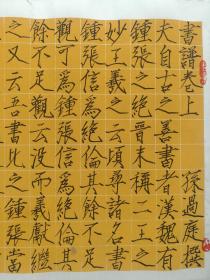 書譜卷上 孫過庭撰
夫自古之善書者漢魏有
鍾張之絕晉末稱二王之
妙王羲之云頃尋諸名書
鍾張信為絕倫其餘不足
觀可為鍾張信為絕倫其
餘不足觀云沒而羲獻繼
之又云吾書比之鍾張當